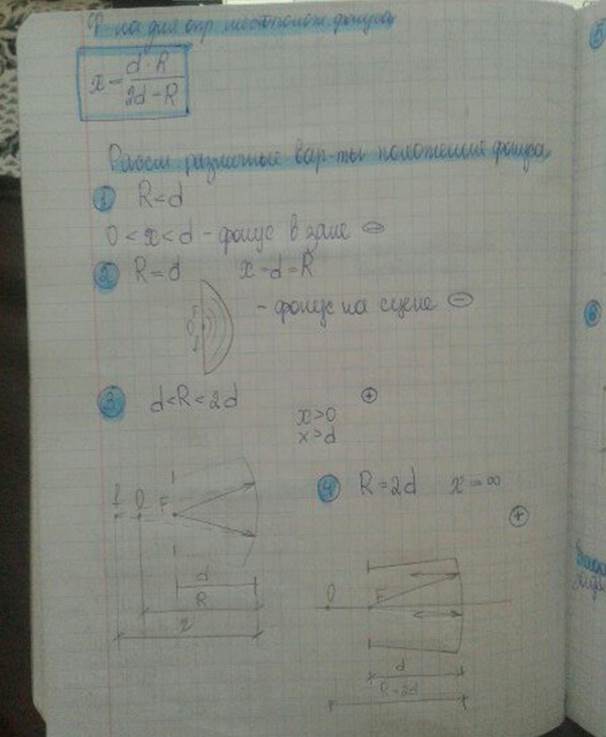 Ф-ла для опр. местополож. фокуса
x = d·R / 2d-R
Рассм. различные вар-ты положений фокуса
1 R<d
0<x<d - фокус в зале ⊖
2 R=d x=d=R
- фокус на сцене ⊖
F
O
3 d<R<2d
⊕
x>0
x>d
4 R=2d x=∞
⊕
O F
d
R
x
O F
d
R=2d
5
6